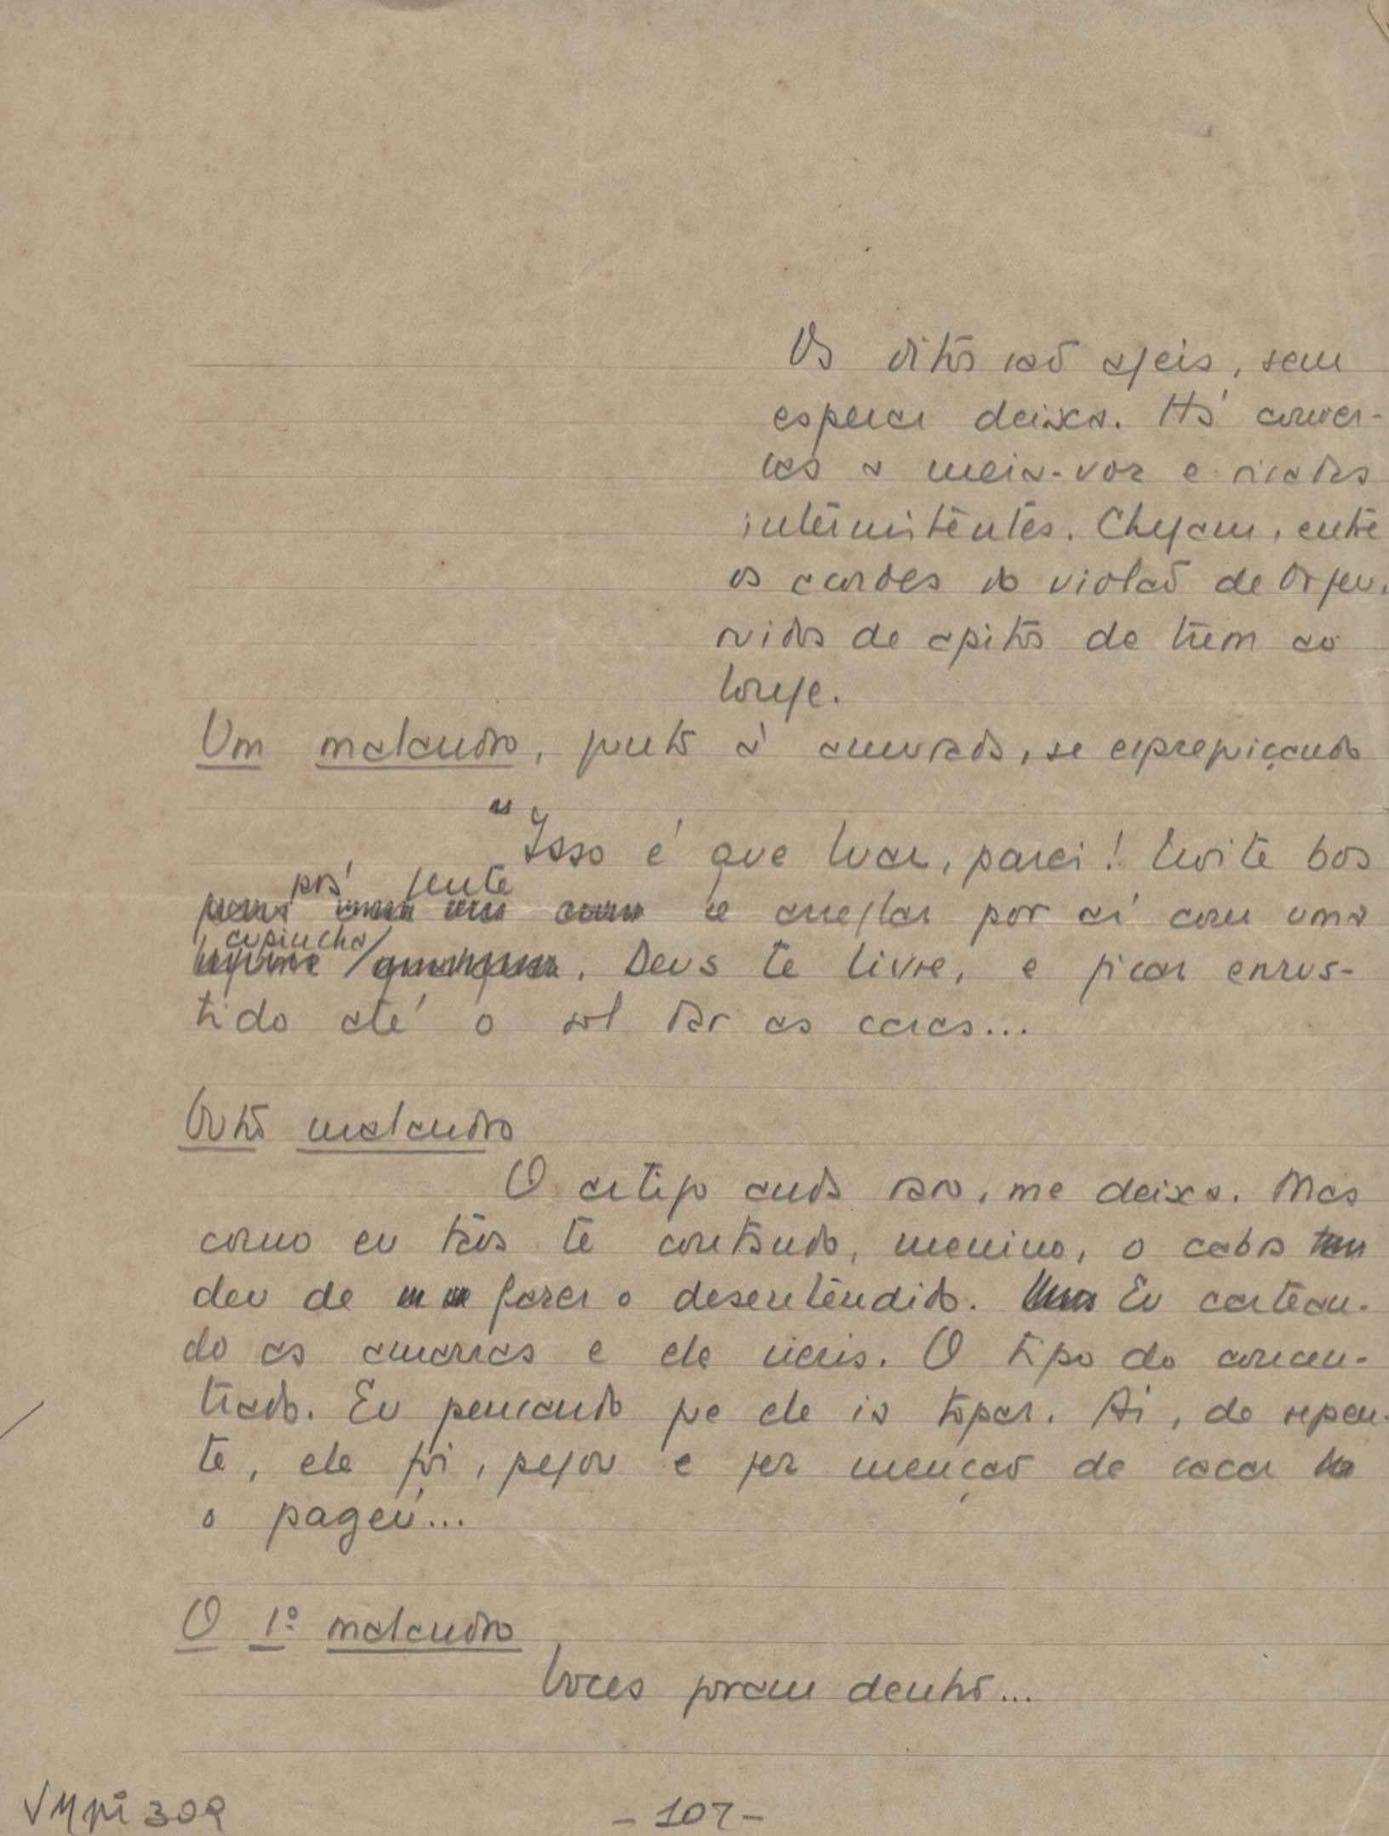 Os ditos são ageis, sem
esperar deixa. Há conver-
sas a meia-voz e risadas
intermitentes. Chegam, entre
os acordes do violão de Orfeu,
ruidos de apitos de trem ao
longe.
Um malandro, junto à amurada, se espreguiçando
Isso é que luar, parei! Noite boa
prá gente
se arreglar por aí com uma
cupincha
, Deus te livre, e ficar enrus-
tido até o sol dar as caras...
Outro malandro
O artigo anda raro, me deixa. Mas
como eu tava te contando, menino, o cabra
deu de fazer o desentendido. Eu cartean-
do as amarras e ele nieris. O tipo do concen-
trado. Eu pensando que ele ia topar. Aí, de repen-
te, ele foi, pegou e fez menção de sacar
o pageú...
O 1º malandro
Voces foram dentro...
VMpi 309
- 107 -